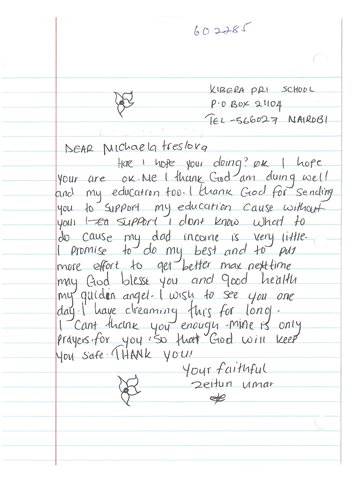 602285
KIBERA PRI SCHOOL
P.O BOX 21104
TEL -566027 NAIROBI
DEAR Michaela treslova
I hope your doing? ok I hope
your are ok. Me I thank God am duing well
and my education too. I thank God for sending
you to support my education cause without
your support I dont know what to
do cause my dad income is very little.
I promise to do my best and to put
more effort to get better max next time
may God blesse you and good health
my guidien angel. I wish to see you one
day. I have dreaming this for long.
I Cant thank you enough. mine is only
prayers for you. So that God will keep
you safe. THANK YOU!
Your faithful
Zeitun umar